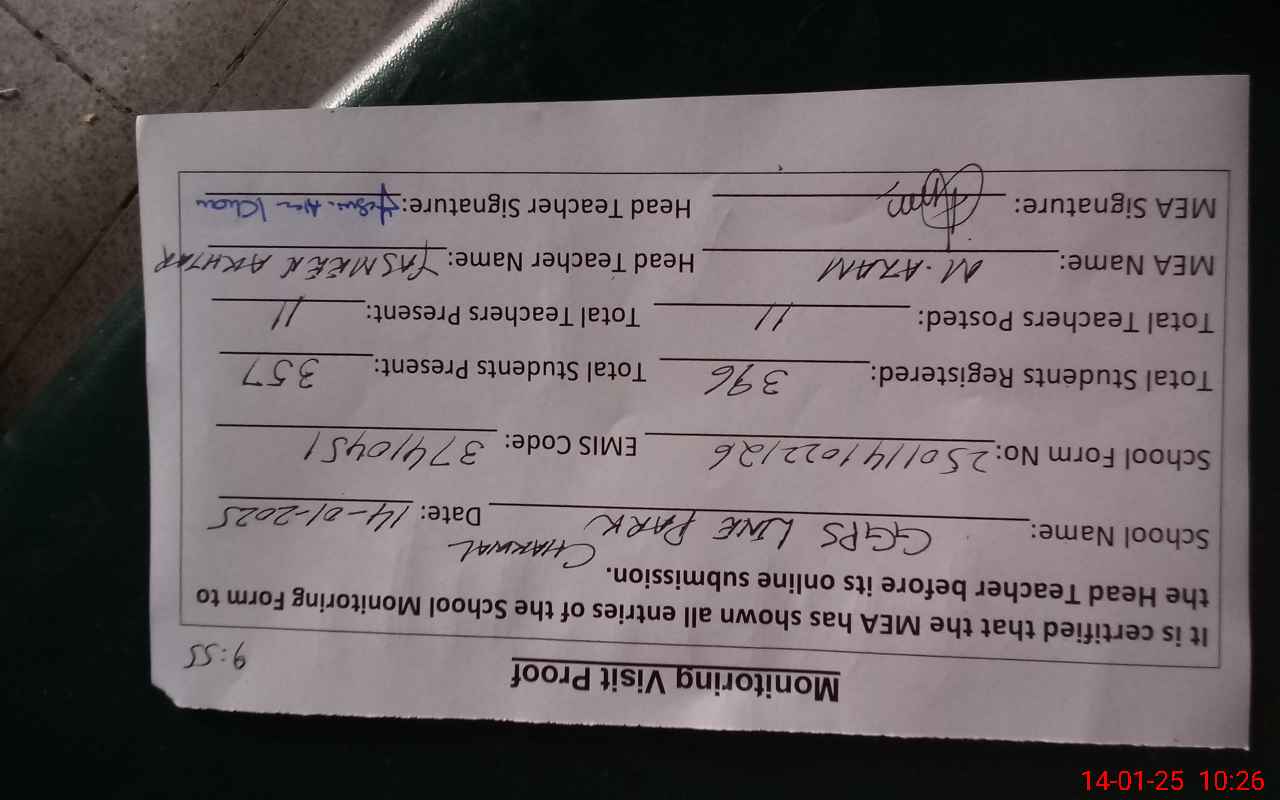 Monitoring Visit Proof
9:55
It is certified that the MEA has shown all entries of the School Monitoring Form to
the Head Teacher before its online submission.
School Name: GGPS LINE PARK CHAKWAL Date: 14-01-2025
School Form No: 2501141022126 EMIS Code: 37410451
Total Students Registered: 396 Total Students Present: 357
Total Teachers Posted: 11 Total Teachers Present: 11
MEA Name: M. AZAM Head Teacher Name: YASMEEN AKHTAR
MEA Signature: Head Teacher Signature:
14-01-25 10:26